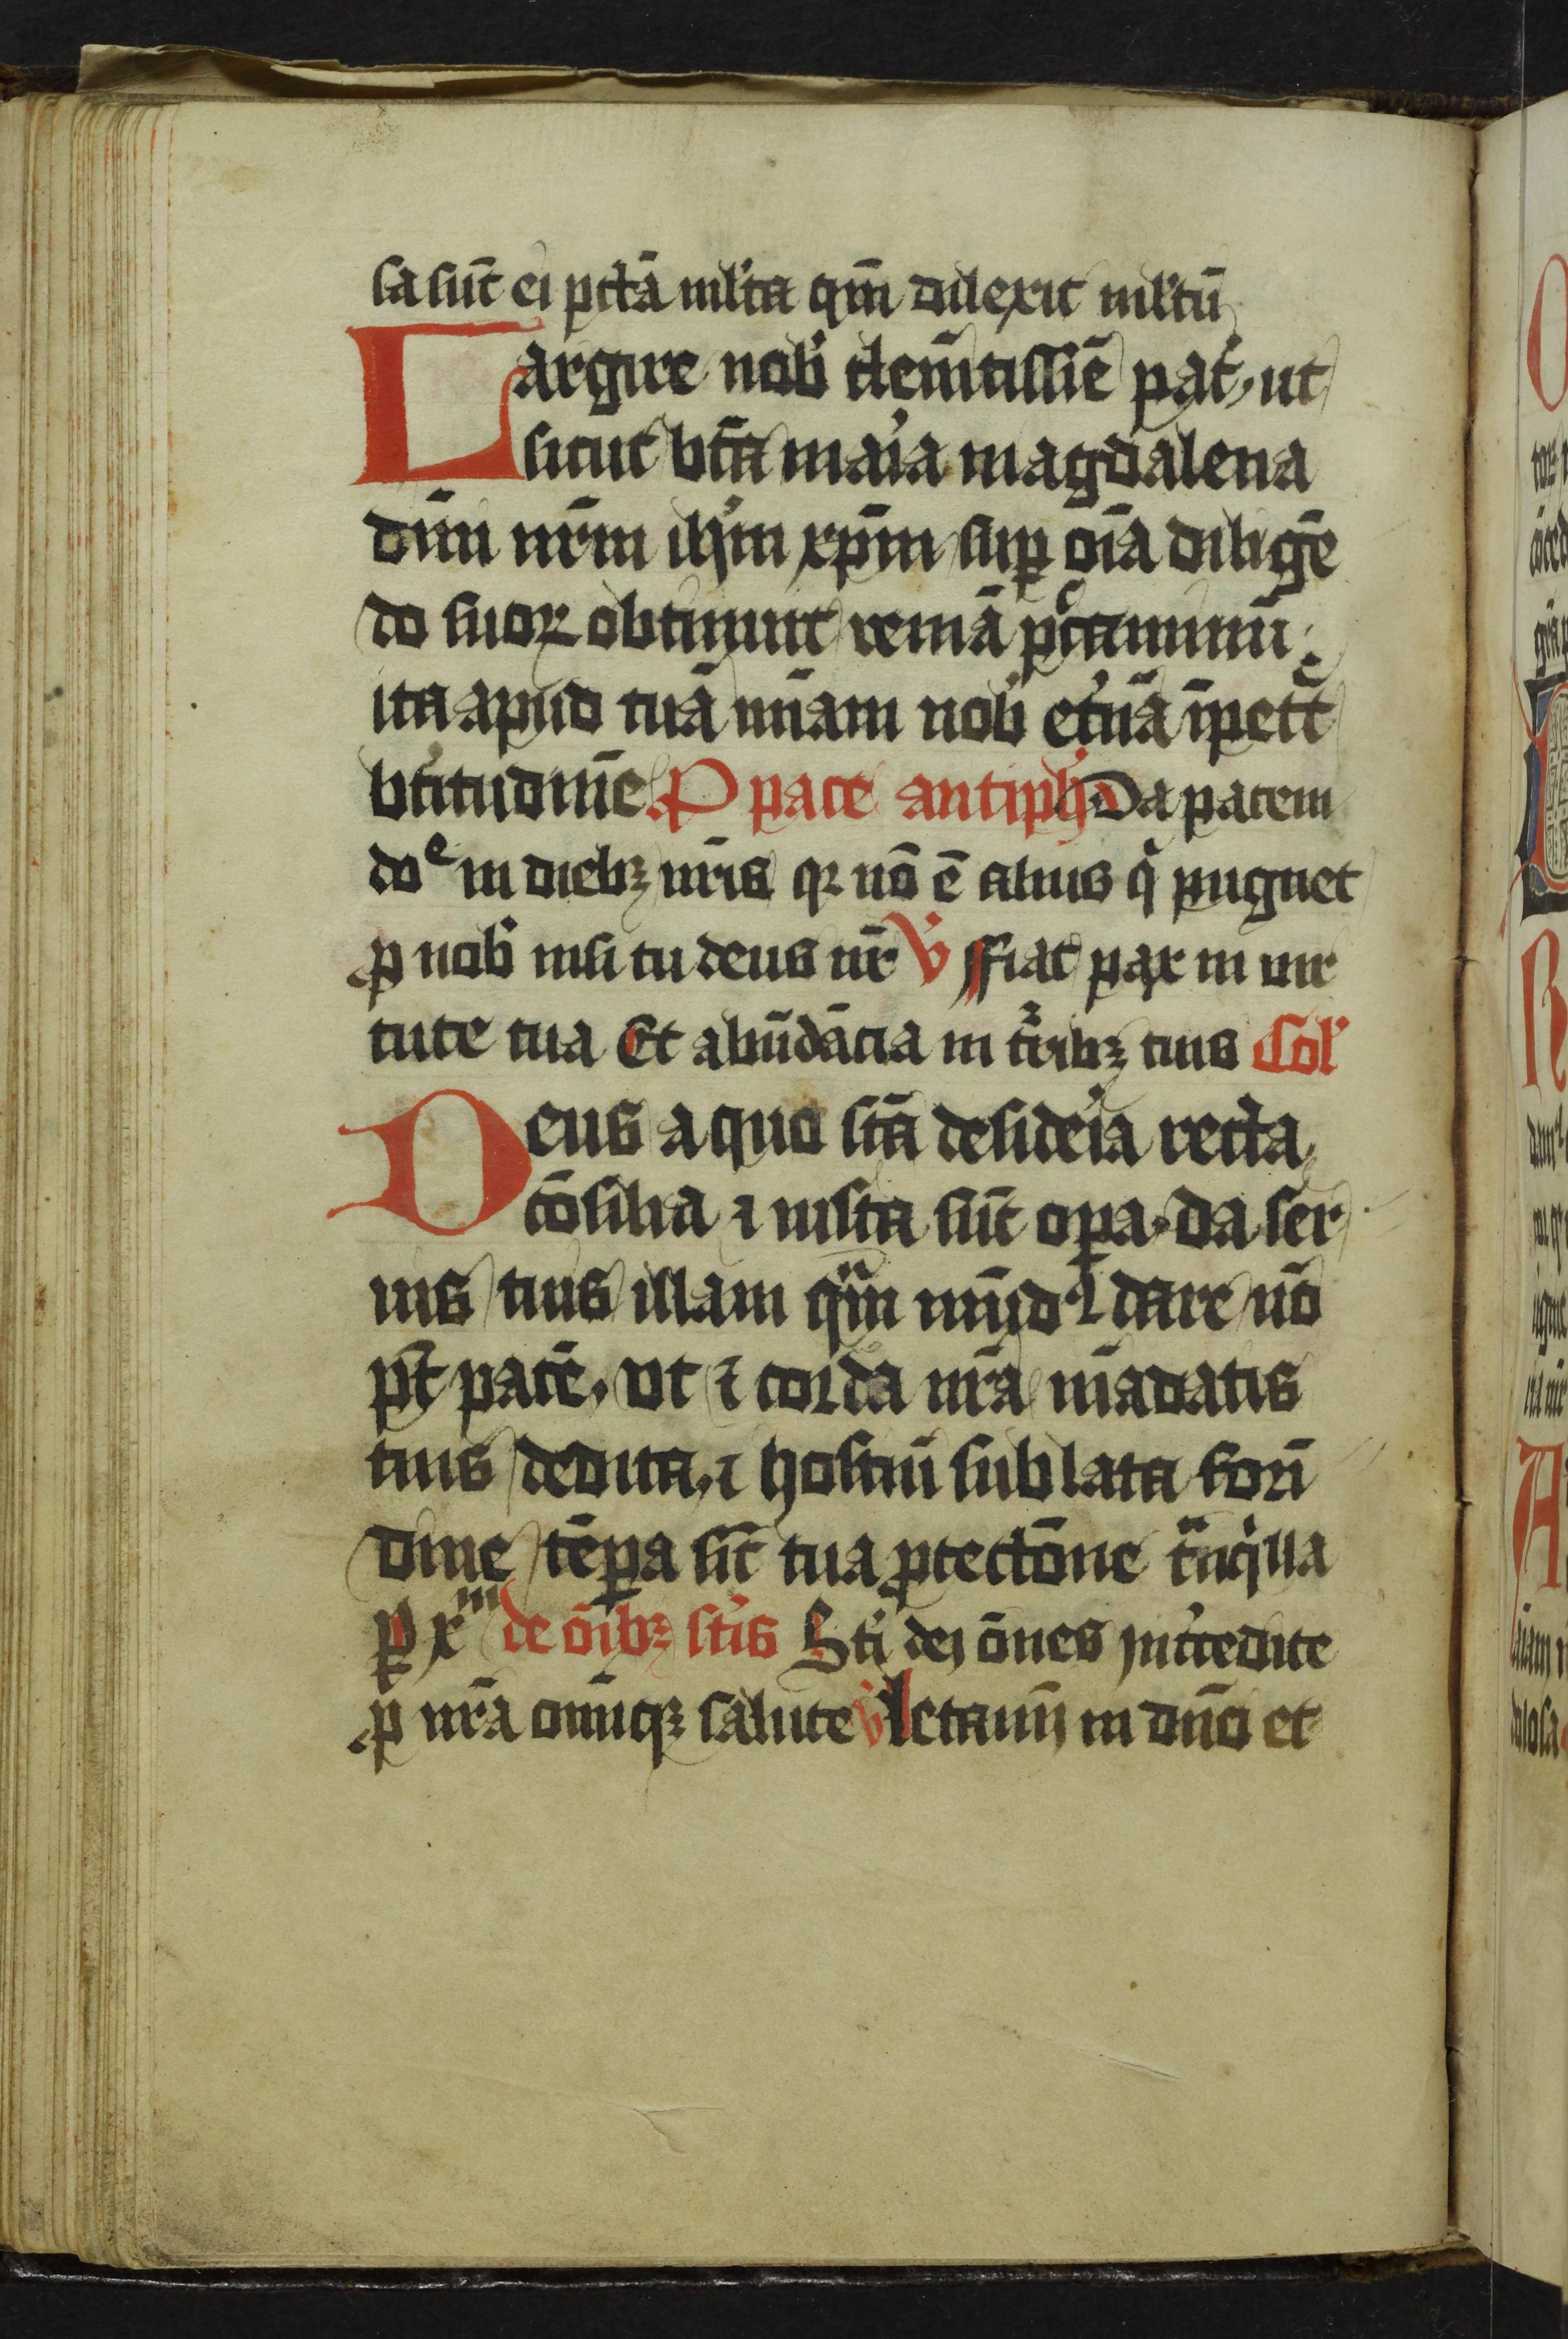 sa sūt ei pctā ml'ta qm̄ dilexit ml'tū
Largire nob' clem̄tissīe pat', ut
sicut bt̄a maīa magdalena
dn̄m nr̄m ih'm xp̄m sup̱ oīa diligē
do suoꝝ obtinuit veniā pͨcaminū;
ita apud tuā mīam nob' et'nā īpetͨt
bt̄itudinē. P pace antiph' Da pacem
doᵉ in diebꝫ nr̄is qꝛ nō ē alius qͥ pugnet
ꝓ nob' nisi tu deus nr̄ V̓ ffiat pax in uir
tute tua Et abūdācia in tͬribꝫ tuis Col'
Deus a quo sc̄a desideīa recta
cōsilia ⁊ iusta sūt oꝑa. da ser
uis tuis illam qᵃm mūdꝰ dare nō
pt̄ pacē. ut ⁊ corda nr̄a mādatis
tuis dedita. ⁊ hostiū sublata formī
dine tēꝑa sīt tua ꝓtectōne tᵃnqͥlla
ꝑ xᵐ de oīibꝫ sc̄is Sc̄i dei ōnes int'cedite
ꝓ nr̄a om̄iūqꝫ salute V̓ Letamī in dn̄o et